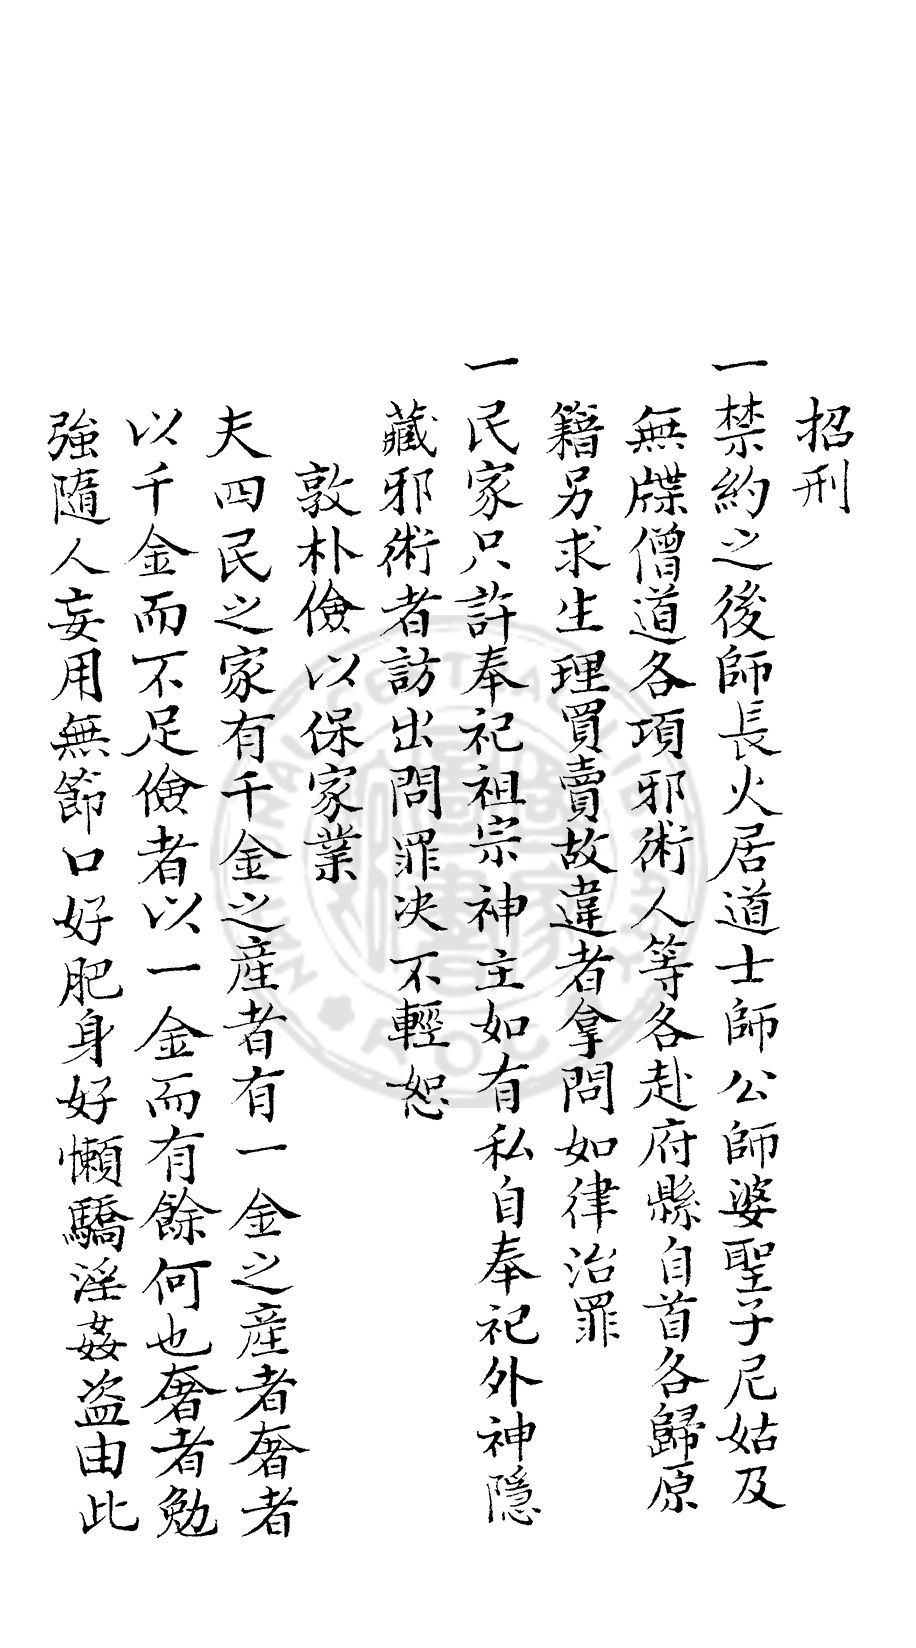 招刑
一禁約之後師長火居道士師公師婆聖子尼姑及
無牒僧道各項邪術人等各赴府縣自首各歸原
籍另求生理買賣故違者拿問如律治罪
一民家只許奉祀祖宗神主如有私自奉祀外神隱
藏邪術者訪出問罪决不輕恕
敦朴儉以保家業
夫四民之家有千金之産者有一金之産者奢者
以千金而不足儉者以一金而有餘何也奢者勉
強隨人妄用無節口好肥身好懶驕淫姦盗由此